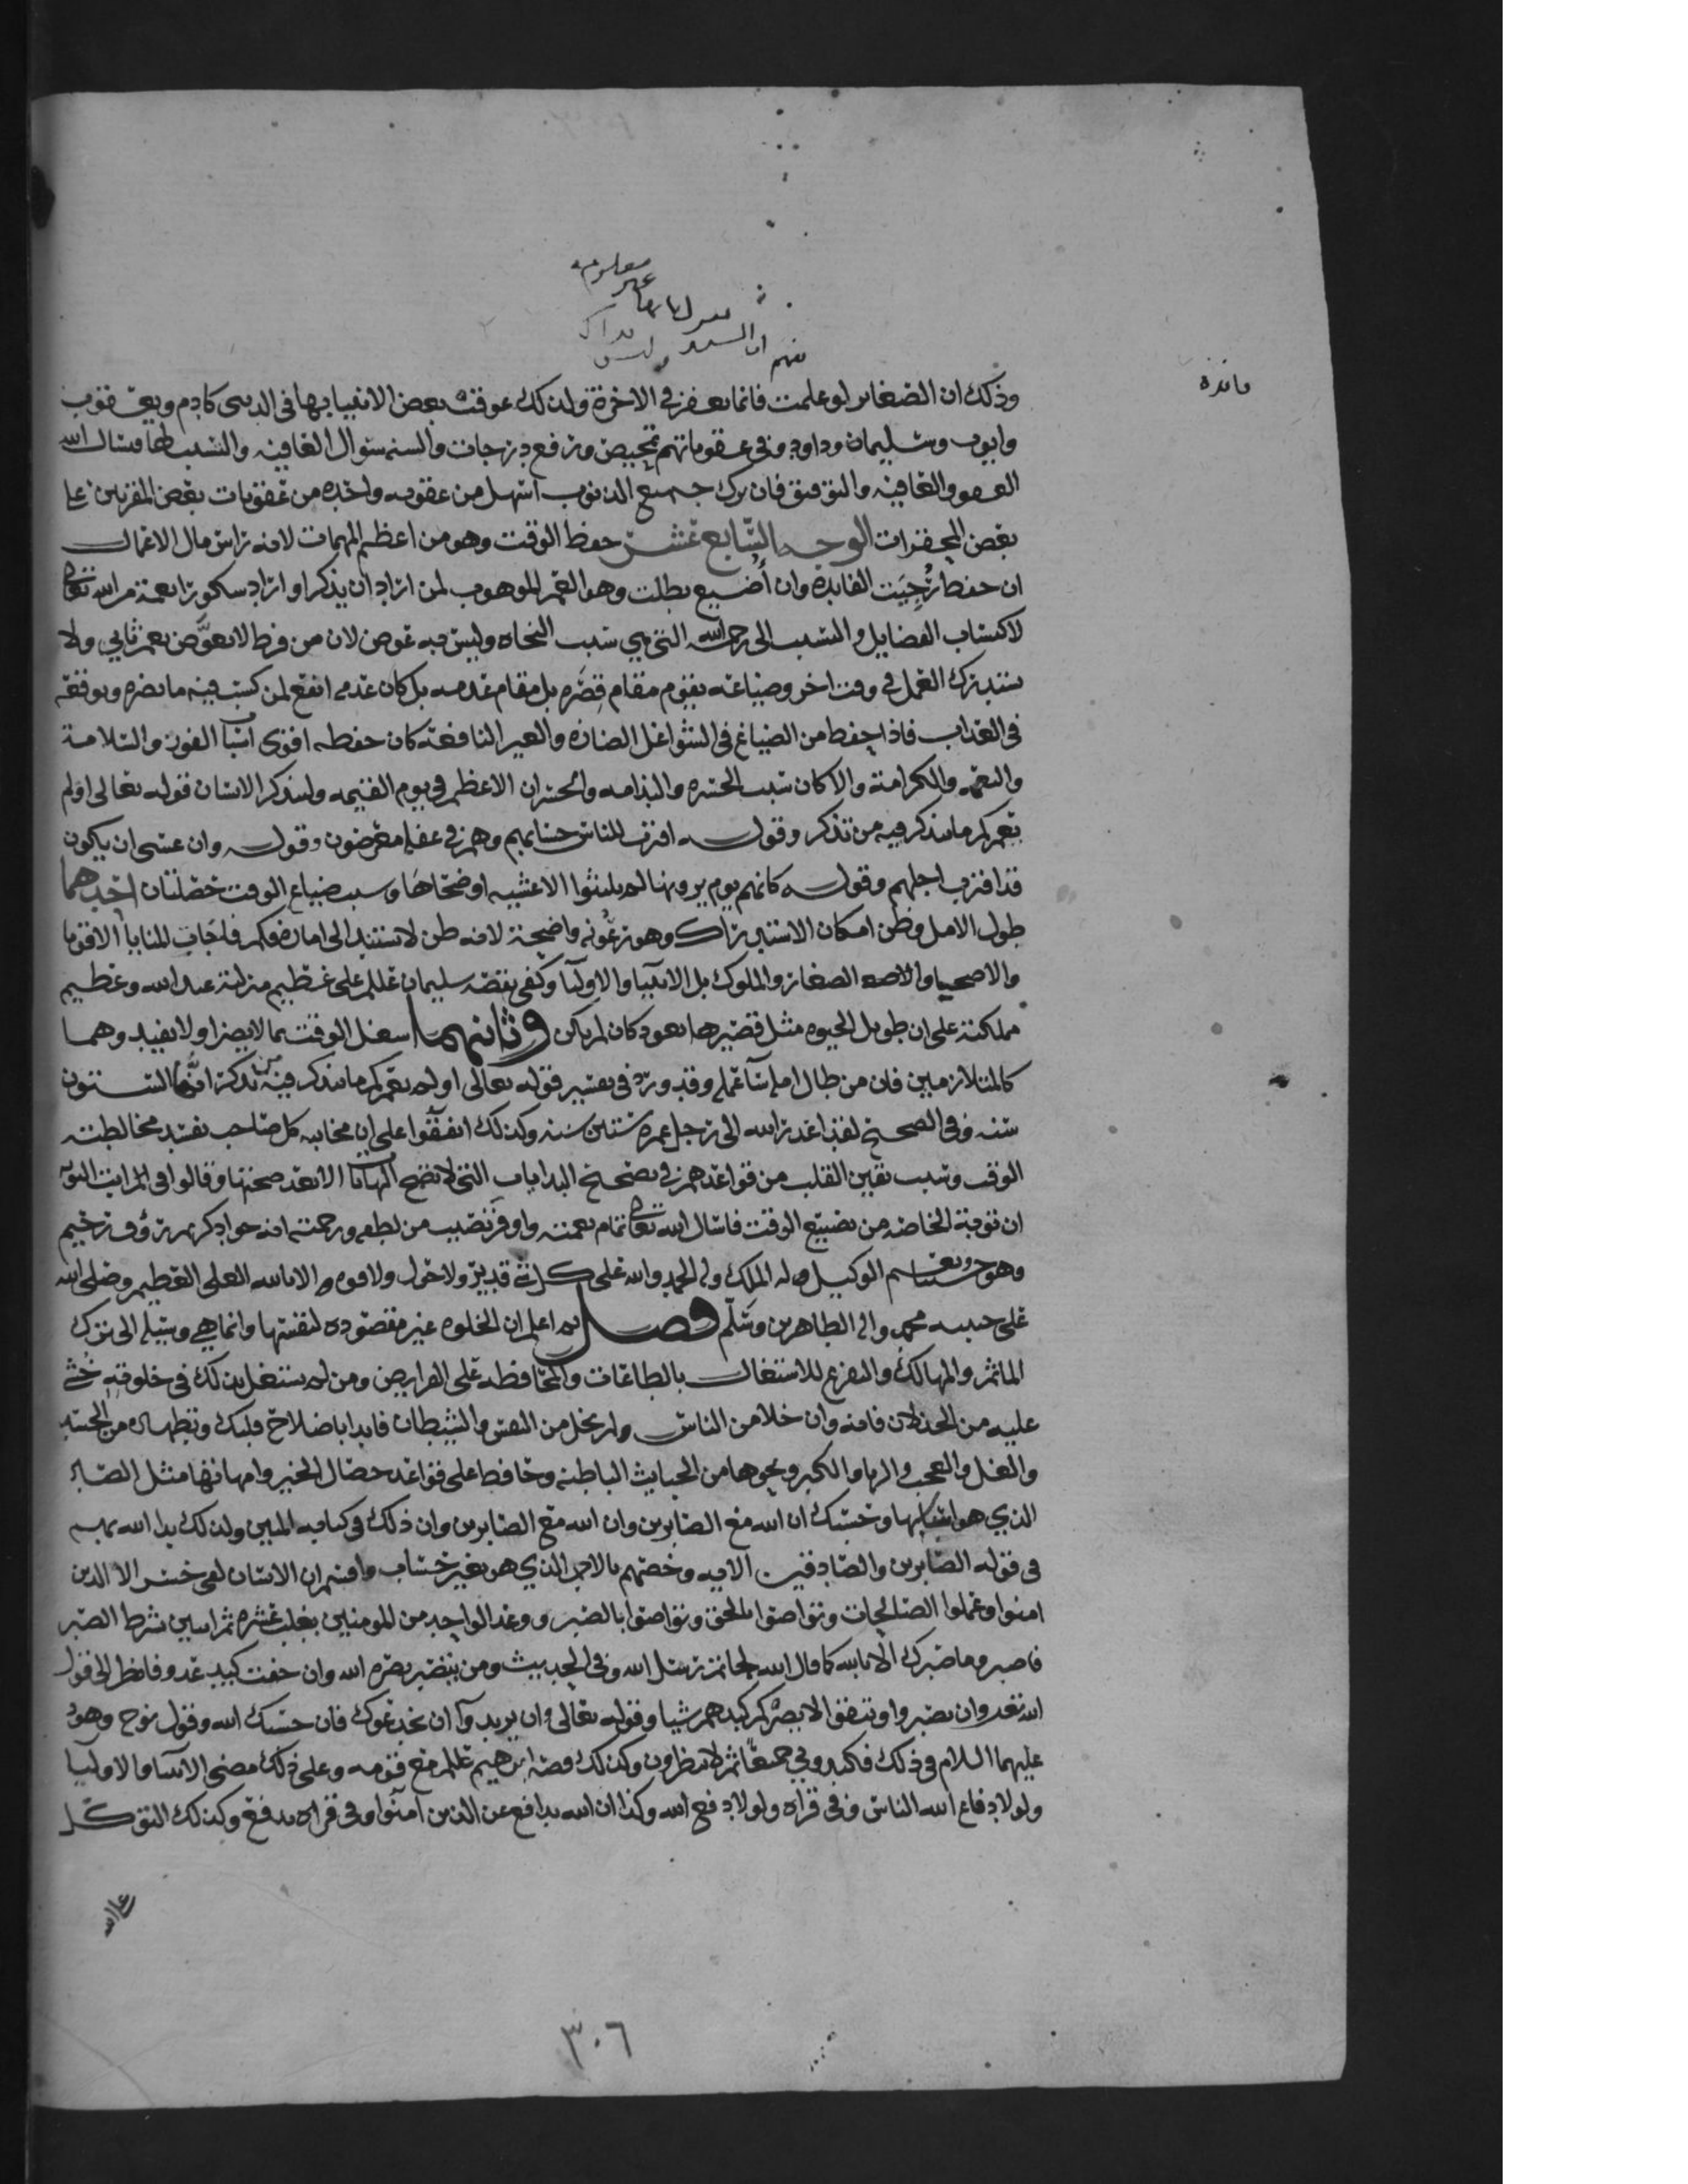 فائدة
معلومه
غير
وذلك ان الصغاير لو علمت فانما تعفر في الاخرة ولذلك عوقب بعض الانبيا بها في الدنيى كادم ويعقوب
وايوب وسليمان وداود وفي عقوباتهم تمحيص ورفع درجات والسنه سوال العافيه والتسبب لها فنسال الله
العفو والعافيه والتوفيق فان ترك جميع الذنوب اسهل من عقوبه واحده من عقوبات بعض المقربين على
بعض المحقرات الوجه السابع عشر حفظ الوقت وهو من اعظم المهمات لانه راس مال الاعمال
ان حفظ رُجِيَت الفايده وان أُضيع بطلت وهو العمر الموهوب لمن اراد ان يذكر او اراد شكورا نعمة من الله تعالى
لاكتساب الفضايل والتسبب الى رحمة الله التي هي سبب النجاه وليس فيه عوض لان من فرط لا يعوَّض بعمر ثاني ولا
يستدرك العمل في وقت اخر وضياعه يقوم مقام قِصَره بل مقام عدمه بل كان عدمه انفع لمن كسب فيه ما يضره ويوقعه
في العذاب فاذا حفظ من الضياع في الشواغل الضاره والغير النافعه كان حفظه اقوى اسباب الفوز والسلامة
والنعمه والكرامة والا كان سبب الحسره والندامه والخسران الاعظم في يوم القيمه وليذكر الانسان قوله تعالى اولم
نعمركم ما يتذكر فيه من تذكر وقوله اقترب للناس حسابهم وهم في غفلة معرضون وقوله وان عسى ان يكون
قد اقترب اجلهم وقوله كانهم يوم يرونها لم يلبثوا الا عشيه او ضحاها وسبب ضياع الوقت خصلتان احدهما
طول الامل وظن امكان الاستدراك وهو رعونه واضحة لانه ظن لا يستند الى اماره فكم فاجات المنايا الاقويا
والاصحيا والصغار والملوك بل الانبيا والاوليا وكفى بقصه سليمان عللم على عظيم منزلته عند الله وعظيم
مملكته على ان طويل الحيوه مثل قصيرها يعود كان لم يكن وثانيهما شغل الوقت بما لا يضر او لا يفيد وهما
كالمتلازمين فان من طال امله سآ عمله وقد ورد في تفسير قوله تعالى اولم نعمركم ما يتذكر فيه من تذكر انها الستون
سنه وفي الصحيح لقد اعذر الله الى رجل عمره ستين سنه وكذلك اتفقوا على ان مجانبه كل صاحب تفسد مخالطته
الوقت وسبب تعين القلب من قواعدهم في تصحيح البدايات التي لا تصح النهايات الا بعد صحتها وقالوا في مراتب التوبه
ان توبة الخاصه من تضييع الوقت فاسال الله تعالى تمام نعمته واوفر نصيب من لطفه ورحمته انه جواد كريم رؤف رحيم
وهو حسبنا ونعم الوكيل وله الملك وله الحمد والله على كل شي قدير ولا حول ولا قوه الا بالله العلي العظيم وصلى الله
على حبيبه محمد واله الطاهرين وسَلّم فصل اعلم ان الخلوه غير مقصوده لنفسها وانما هي وسيله الى ترك
الماثم والمهالك والتفرغ للاشتغال بالطاعات والمحافظه على الفرايض ومن لم يشتغل بذلك في خلوته خُشي
عليه من الخذلان فانه وان خلا من الناس ولم يخل من النفس والشيطان فابدا باصلاح قلبك وتطهيره من الحسد
والغل والعجب والريا والكبر ونحوها من الخبايث الباطنه وحافظ على قواعد خصال الخير وامهاتها مثل الصبر
الذي هو اساسها وحسبك ان الله مع الصابرين وان الله مع الصابرين وان ذلك في كتابه المبين ولذلك بدا الله بهم
في قوله الصابرين والصادقين الايه وخصهم بالاجر الذي هو بغير حساب واقسم ان الانسان لفي خسر الا الذين
امنوا وعملوا الصالحات وتواصوا بالحق وتواصوا بالصبر ووعد الواحد من المومنين بغلب عشره ثم اثنين بشرط الصبر
فاصبر وما صبرك الا بالله كما قال الله لخاتم رسل الله وفي الحديث ومن يتصبر يصبره الله وان خفت كيد عدو فانظر الى قول
الله تعالى وان تصبروا وتتقوا لا يضركم كيدهم شيا وقوله تعالى وان يريدوآ ان يخدعوك فان حسبك الله وقول نوح وهود
عليهما السلام في ذلك فكيدوني جميعًا ثم لا تنظرون وكذلك قصه ابرهيم عللم مع قومه وعلى ذلك مضى الانبيا والاوليا
ولولا دفاع الله الناس وفي قراه ولولا دفع الله وكذا ان الله يدافع عن الذين امنوا وفي قراه يدفع وكذلك التوكل
٣٠٦